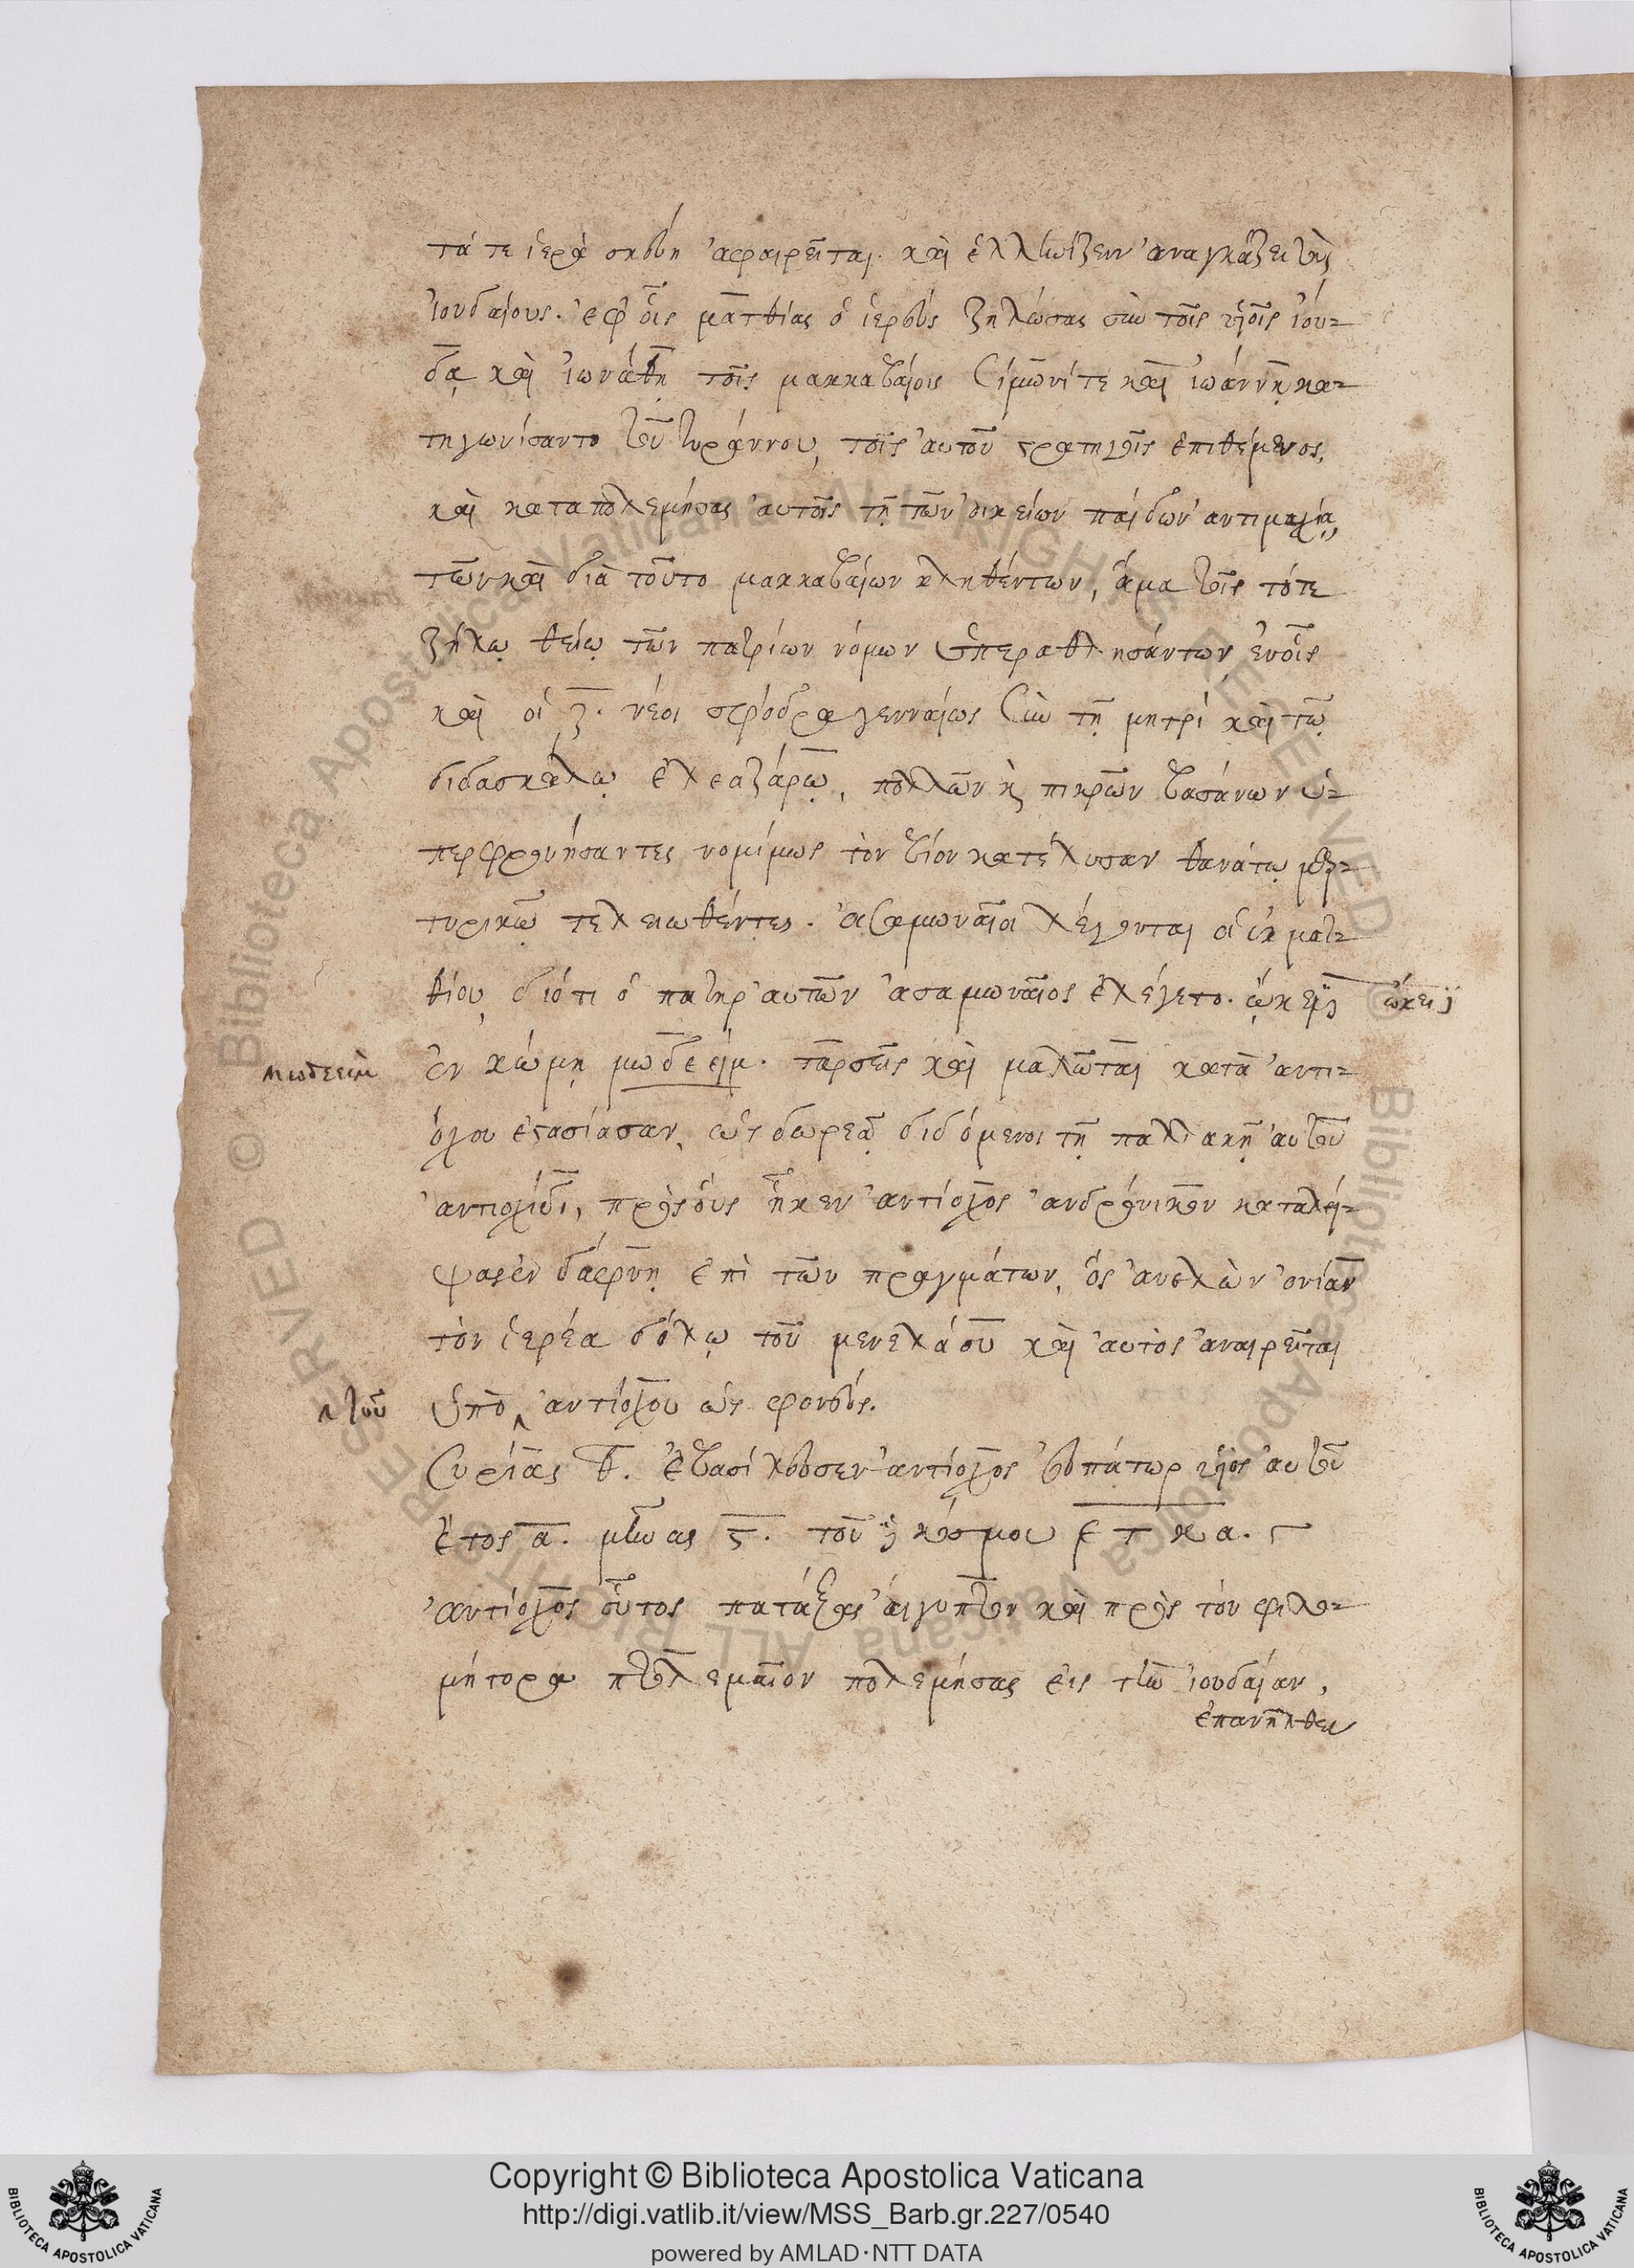 τά τε ἱερὰ σκεύη ἀφαιρεῖται. καὶ ἑλληνίζειν ἀναγκάζει τοὺς
Ἰουδαίους. ἐφ' οἷς ματθίας ὁ ἱερεὺς ζηλώσας σὺν τοῖς υἱοῖς ἰού-
δᾳ καὶ ἰωνάθῃ τοῖς μακκαβαίοις σίμωνί τε καὶ ἰωάννῃ κα-
τηγωνίσαντο τοῦ τυράννου, τοῖς αὐτοῦ στρατηγοῖς ἐπιθέμενος,
καὶ καταπολεμήσας αὐτοῖς τῇ τῶν οἰκείων παίδων ἀντιμαχίᾳ,
τῶν καὶ διὰ τοῦτο μακκαβαίων κληθέντων, ἅμα τοῖς τότε
ζήλῳ θείῳ τῶν πατρίων νόμων ὑπεραθλησάντων ἐν οἷς
καὶ οἱ ζ. νέοι σφόδρα γενναίως σὺν τῇ μητρὶ καὶ τῷ
διδασκάλῳ ἐλεαζάρῳ, πολλῶν κ̀ πικρῶν βασάνων ὑ-
περφρονήσαντες νομίμως τὸν βίον κατέλυσαν θανάτῳ μαρ-
τυρικῷ τελειωθέντες. ἀσαμωναῖοι λέγονται οἱ ἐκ ματ-
θίου, διότι ὁ πατὴρ αὐτῶν ἀσαμωναῖος ἐλέγετο. ᾤκει ᾤκει
μωδεείμ ἐν κώμῃ μωδεείμ. ταρσεῖς καὶ μαλῶται κατὰ ἀντι-
όχου ἐστασίασαν, ὡς δωρεᾷ διδόμενοι τῇ παλλακῇ αὐτοῦ
ἀντιοχίδι, πρὸς οὓς ἧκεν ἀντίοχος ἀνδρόνικον καταλεί-
ψας ἐν δάφνῃ ἐπὶ τῶν πραγμάτων, ὃς ἀνελὼν ὀνίαν
τὸν ἱερέα δόλῳ τοῦ μενελάου καὶ αὐτὸς ἀναιρεῖται
τοῦ ὑπὸ ἀντιόχου ὡς φονεύς.
Συρίας θ. ἐβασίλευσεν ἀντίοχος εὐπάτωρ υἱὸς αὐτοῦ
ἔτος α. μῆνας ς. τοῦ δὲ κόσμου ε τ κ α.
ἀντίοχος οὗτος πατάξας αἴγυπτον καὶ πρὸς τὸν φιλο-
μήτορα πτολεμαῖον πολεμήσας εἰς τὴν ἰουδαίαν,
ἐπανῆλθεν
Copyright © Biblioteca Apostolica Vaticana
http://digi.vatlib.it/view/MSS_Barb.gr.227/0540
powered by AMLAD·NTT DATA